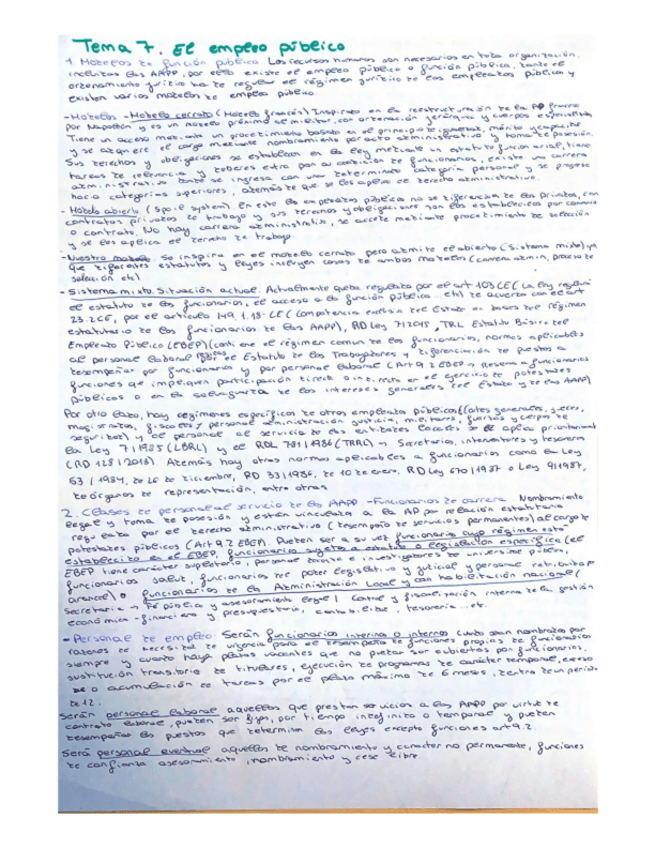 Tema 7. El empleo público
1. Modelos de función pública. Los recursos humanos son necesarios en toda organización,
incluidas las AAPP, por ello existe el empleo público o función pública, donde el
ordenamiento jurídico ha de regular el régimen jurídico de los empleados públicos y
existen varios modelos de empleo público.
-Modelos -Modelo cerrado (Modelo francés) Inspirado en la reestructuración de la AP francesa
por Napoleón y es un modelo próximo al militar, con ordenación jerárquica y cuerpos especializados
Tiene un acceso mediante un procedimiento basado en el principio de igualdad, mérito y capacidad
y se adquiere el cargo mediante nombramiento por acto administrativo y toma de posesión.
Sus derechos y obligaciones se establecen en la ley mediante un estatuto funcionarial, tiene
tareas de relevancia y deberes extra por su condición de funcionarios, existe una carrera
administrativa donde se ingresa con una determinada categoría personal y se progresa
hacia categorías superiores, además de que se les aplica el derecho administrativo.
- Modelo abierto (Spoil system). En este los empleados públicos no se diferencian de los privados, con
contratos privados de trabajo y sus derechos y obligaciones son los establecidos por convenio
o contrato. No hay carrera administrativa, se accede mediante procedimiento de selección
y se les aplica el derecho de trabajo
-Nuestro modelo. Se inspira en el modelo cerrado pero admite el abierto (Sistema mixto) ya
que diferentes estatutos y leyes incluyen cosas de ambos modelos (carrera admin, proceso de
selección etc)
- Sistema mixto. Situación actual. Actualmente queda regulado por el art 103 CE (La ley regulará
el estatuto de los funcionarios, el acceso a la función pública... etc) de acuerdo con el art
23.2 CE, por el artículo 149.1.18 CE (Competencia exclusiva del Estado en bases del régimen
estatutario de los funcionarios de las AAPP), RD Ley 7/2015, TRL Estatuto Básico del
Empleado Público (EBEP) (contiene el régimen común de los funcionarios, normas aplicables
al personal laboral el Estatuto de los Trabajadores y diferenciación de puestos a
desempeñar por funcionarios y por personal laboral (Art 9.2 EBEP → Reserva a funcionarios
funciones que impliquen participación directa o indirecta en el ejercicio de potestades
públicas o en la salvaguarda de los intereses generales del Estado y de las AAPP)
Por otro lado, hay regímenes específicos de otros empleados públicos (Cortes generales, jueces,
magistrados, fiscales y personal administración justicia, militares, fuerzas y cuerpos de
seguridad) y el personal al servicio de las entidades locales se le aplica prioritariamente
la Ley 7/1985 (LBRL) y el RDL 781/1986 (TRRL) → Secretarios, interventores y tesoreros
(RD 128/2018) Además hay otras normas aplicables a funcionarios como la Ley
53/1984, de 26 de diciembre, RD 33/1986, de 10 de enero, RD Ley 670/1987 o Ley 9/1987,
de órganos de representación, entre otras
2. Clases de personal al servicio de las AAPP -Funcionarios de carrera. Nombramiento
legal y toma de posesión y están vinculados a la AP por relación estatutaria
regulada por el derecho administrativo (desempeño de servicios permanentes) al cargo de
potestades públicas (Art 9.2 EBEP). Pueden ser a su vez funcionarios cuyo régimen está
establecido en el EBEP, funcionario sujeto a estatuto o legislación específica (el
EBEP tiene carácter supletorio, personal docente e investigadores de universidad pública,
funcionarios salud, funcionarios del poder legislativo y judicial y personal retribuido por
arancel) o funcionarios de la Administración Local y con habilitación nacional (
secretaría → Fe pública y asesoramiento legal / Control y fiscalización interna de la gestión
económico-financiera y presupuestaria, contabilidad, tesorería ...etc.
- Personal de empleo. Serán funcionarios interinos o internos cuando sean nombrados por
razones de necesidad de urgencia para el desempeño de funciones propias de funcionarios
siempre y cuando haya plazas vacantes que no puedan ser cubiertas por funcionarios,
sustitución transitoria de titulares, ejecución de programas de carácter temporal, exceso
o acumulación de tareas por el plazo máximo de 6 meses, dentro de un periodo
de 12.
Serán personal laboral aquellos que prestan servicios a las AAPP por virtud de
contrato laboral, pueden ser fijos, por tiempo indefinido o temporal y pueden
desempeñar los puestos que determinen las leyes excepto funciones art 9.2.
Será personal eventual aquellos de nombramiento y carácter no permanente, funciones
de confianza asesoramiento, nombramiento y cese libre.